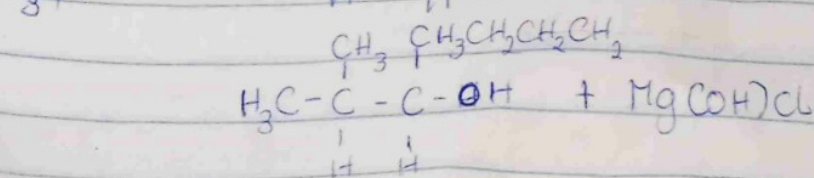 CH₃ CH₃CH₂CH₂CH₂
H₃C-C-C-OH + Mg(OH)Cl
H H